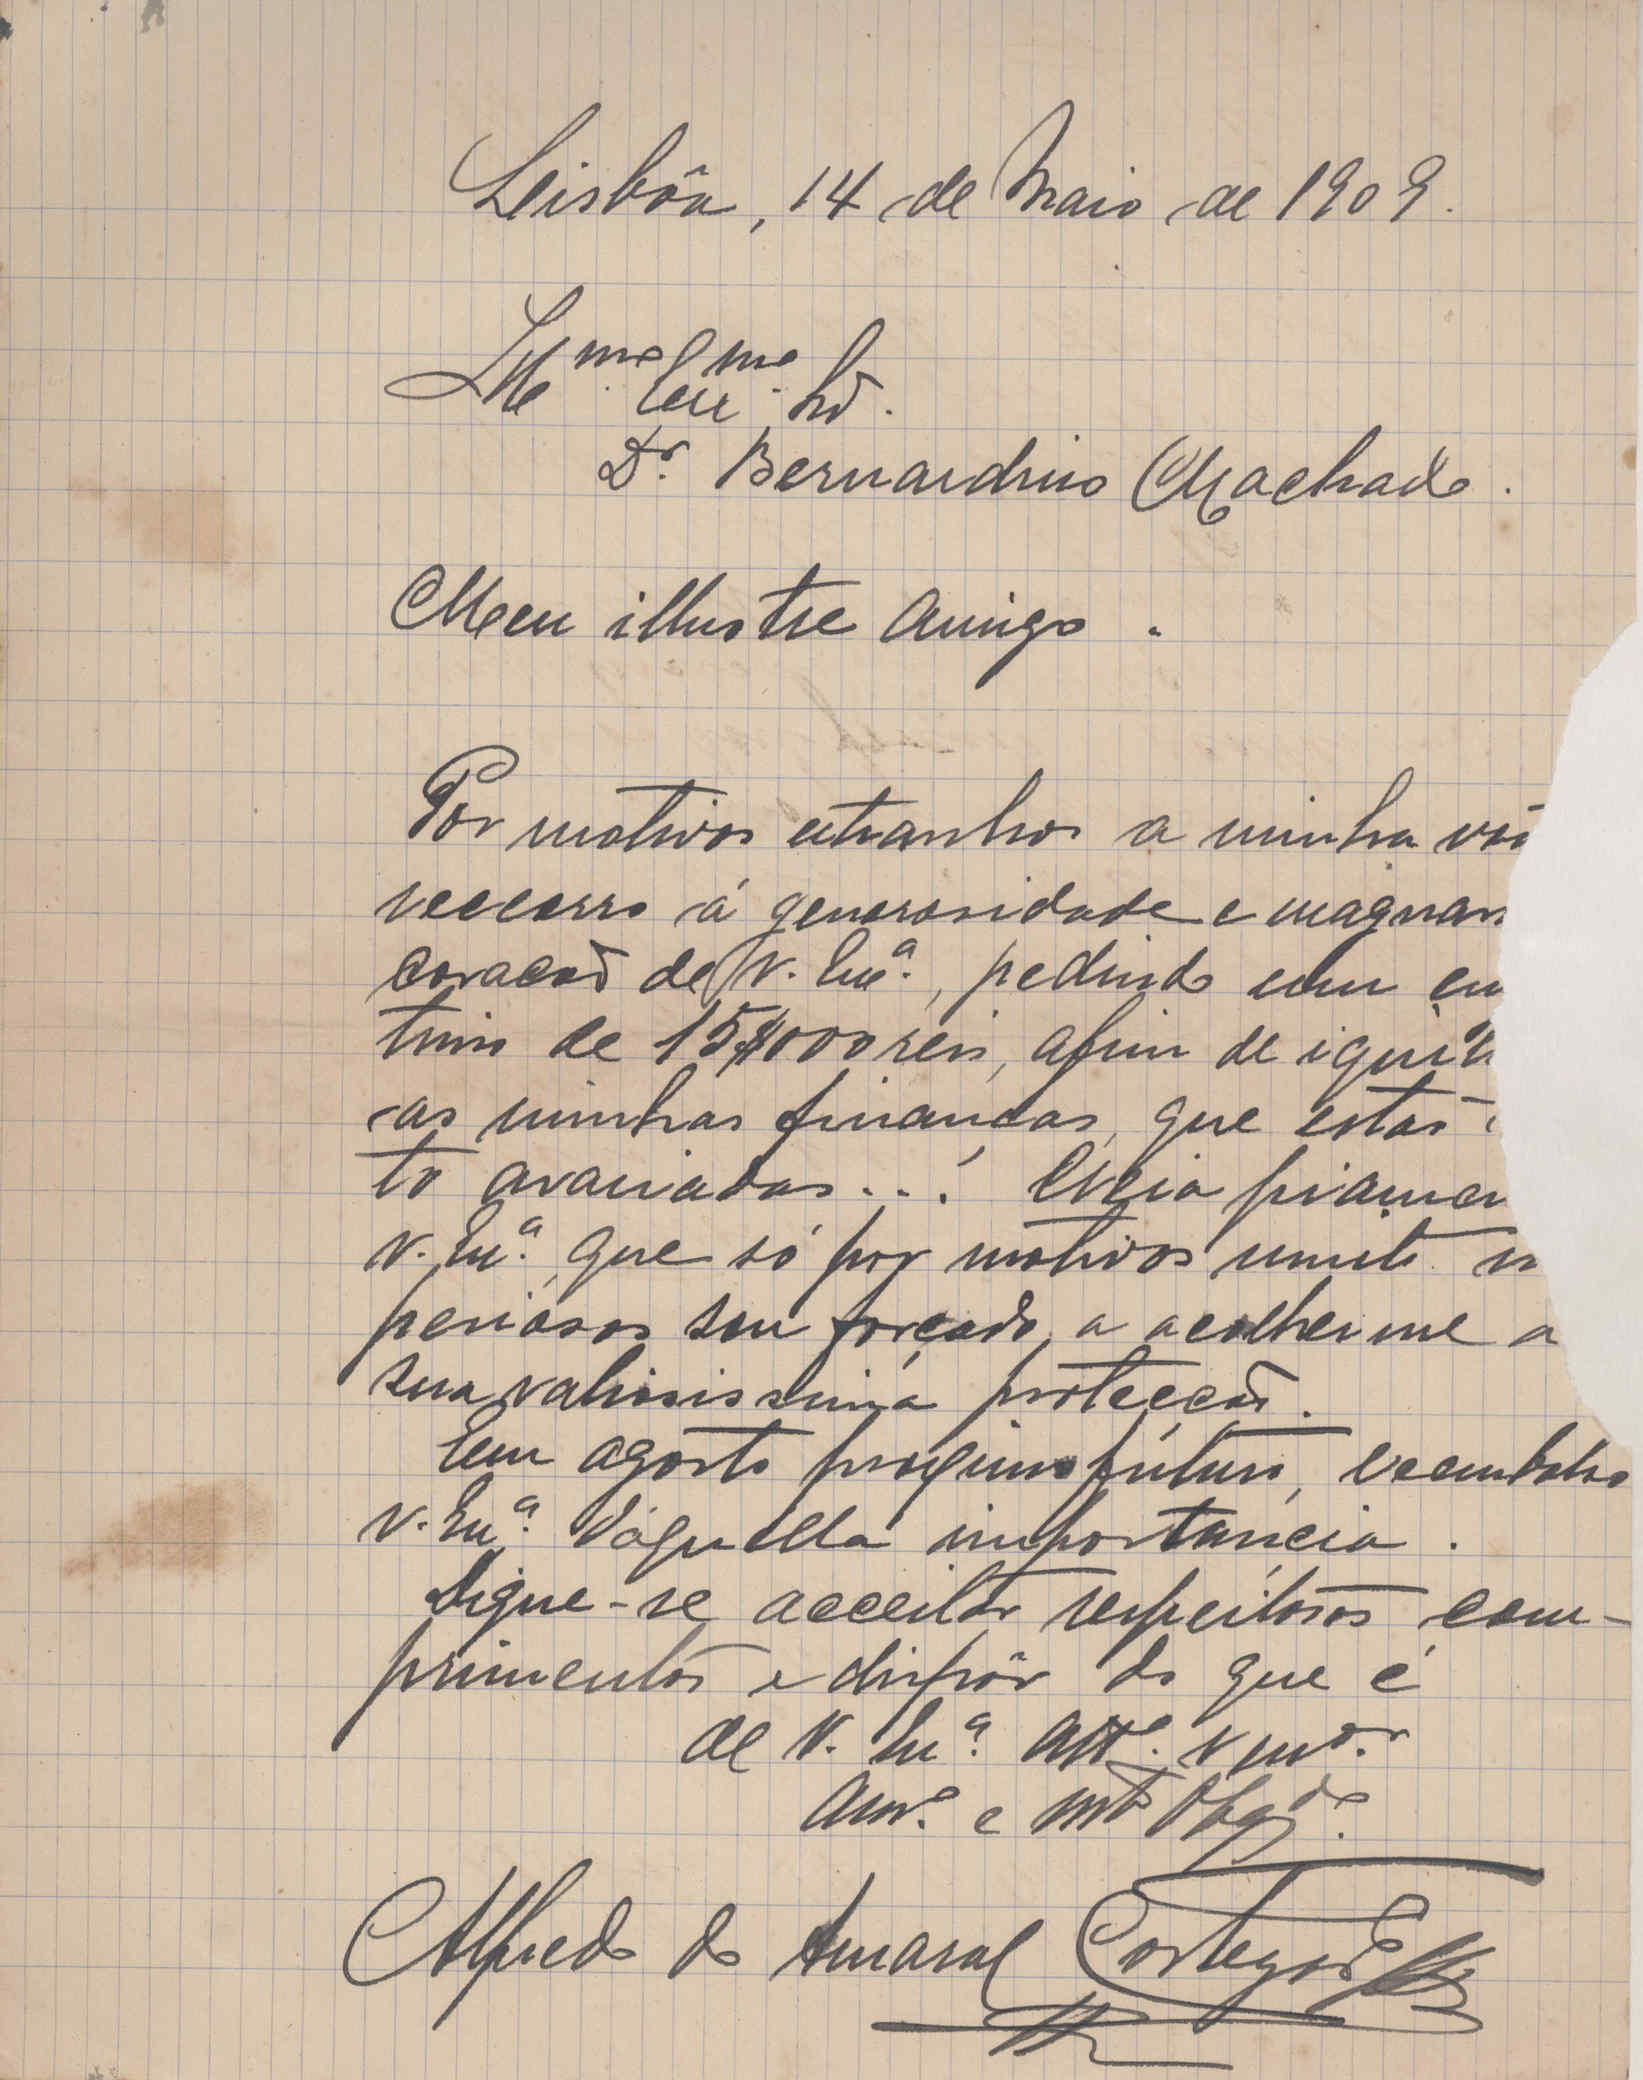 Lisbôa, 14 de Maio de 1909.
Ill.mo Exm.mo Sr.
Dr. Bernardino Machado.
Meu illustre Amigo.
Por motivos extranhos a minha von
reccorro á generosidade e magnan
coração de V. Exa., pedindo um em
timo de 15$000 reis, afim de iguil
as minhas finanças, que estão
to avariadas...! Creia piamen
V. Exa. que só por motivos muito im
periosos sou forçado, a acolher me a
sua valiosissima protecção.
Em agosto proximo futuro, reembolso
V. Exa. d'aquella importancia.
Digne-se acceitar respeitosos com-
primentos e dispôr do que é
de V. Exa. Att.º Vndor.
Amº. e mtº Obgdº.
Alfredo do Amaral Cortegaõ